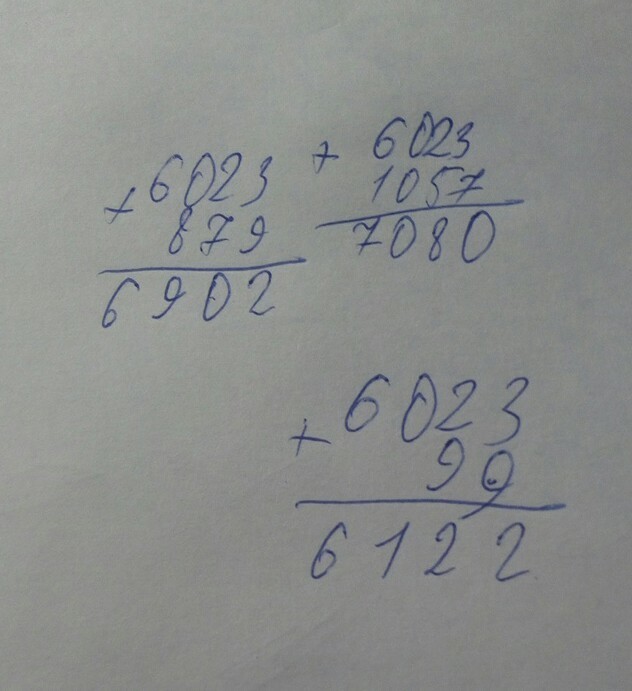 + 6023
879
6902
+ 6023
1057
7080
+ 6023
99
6122